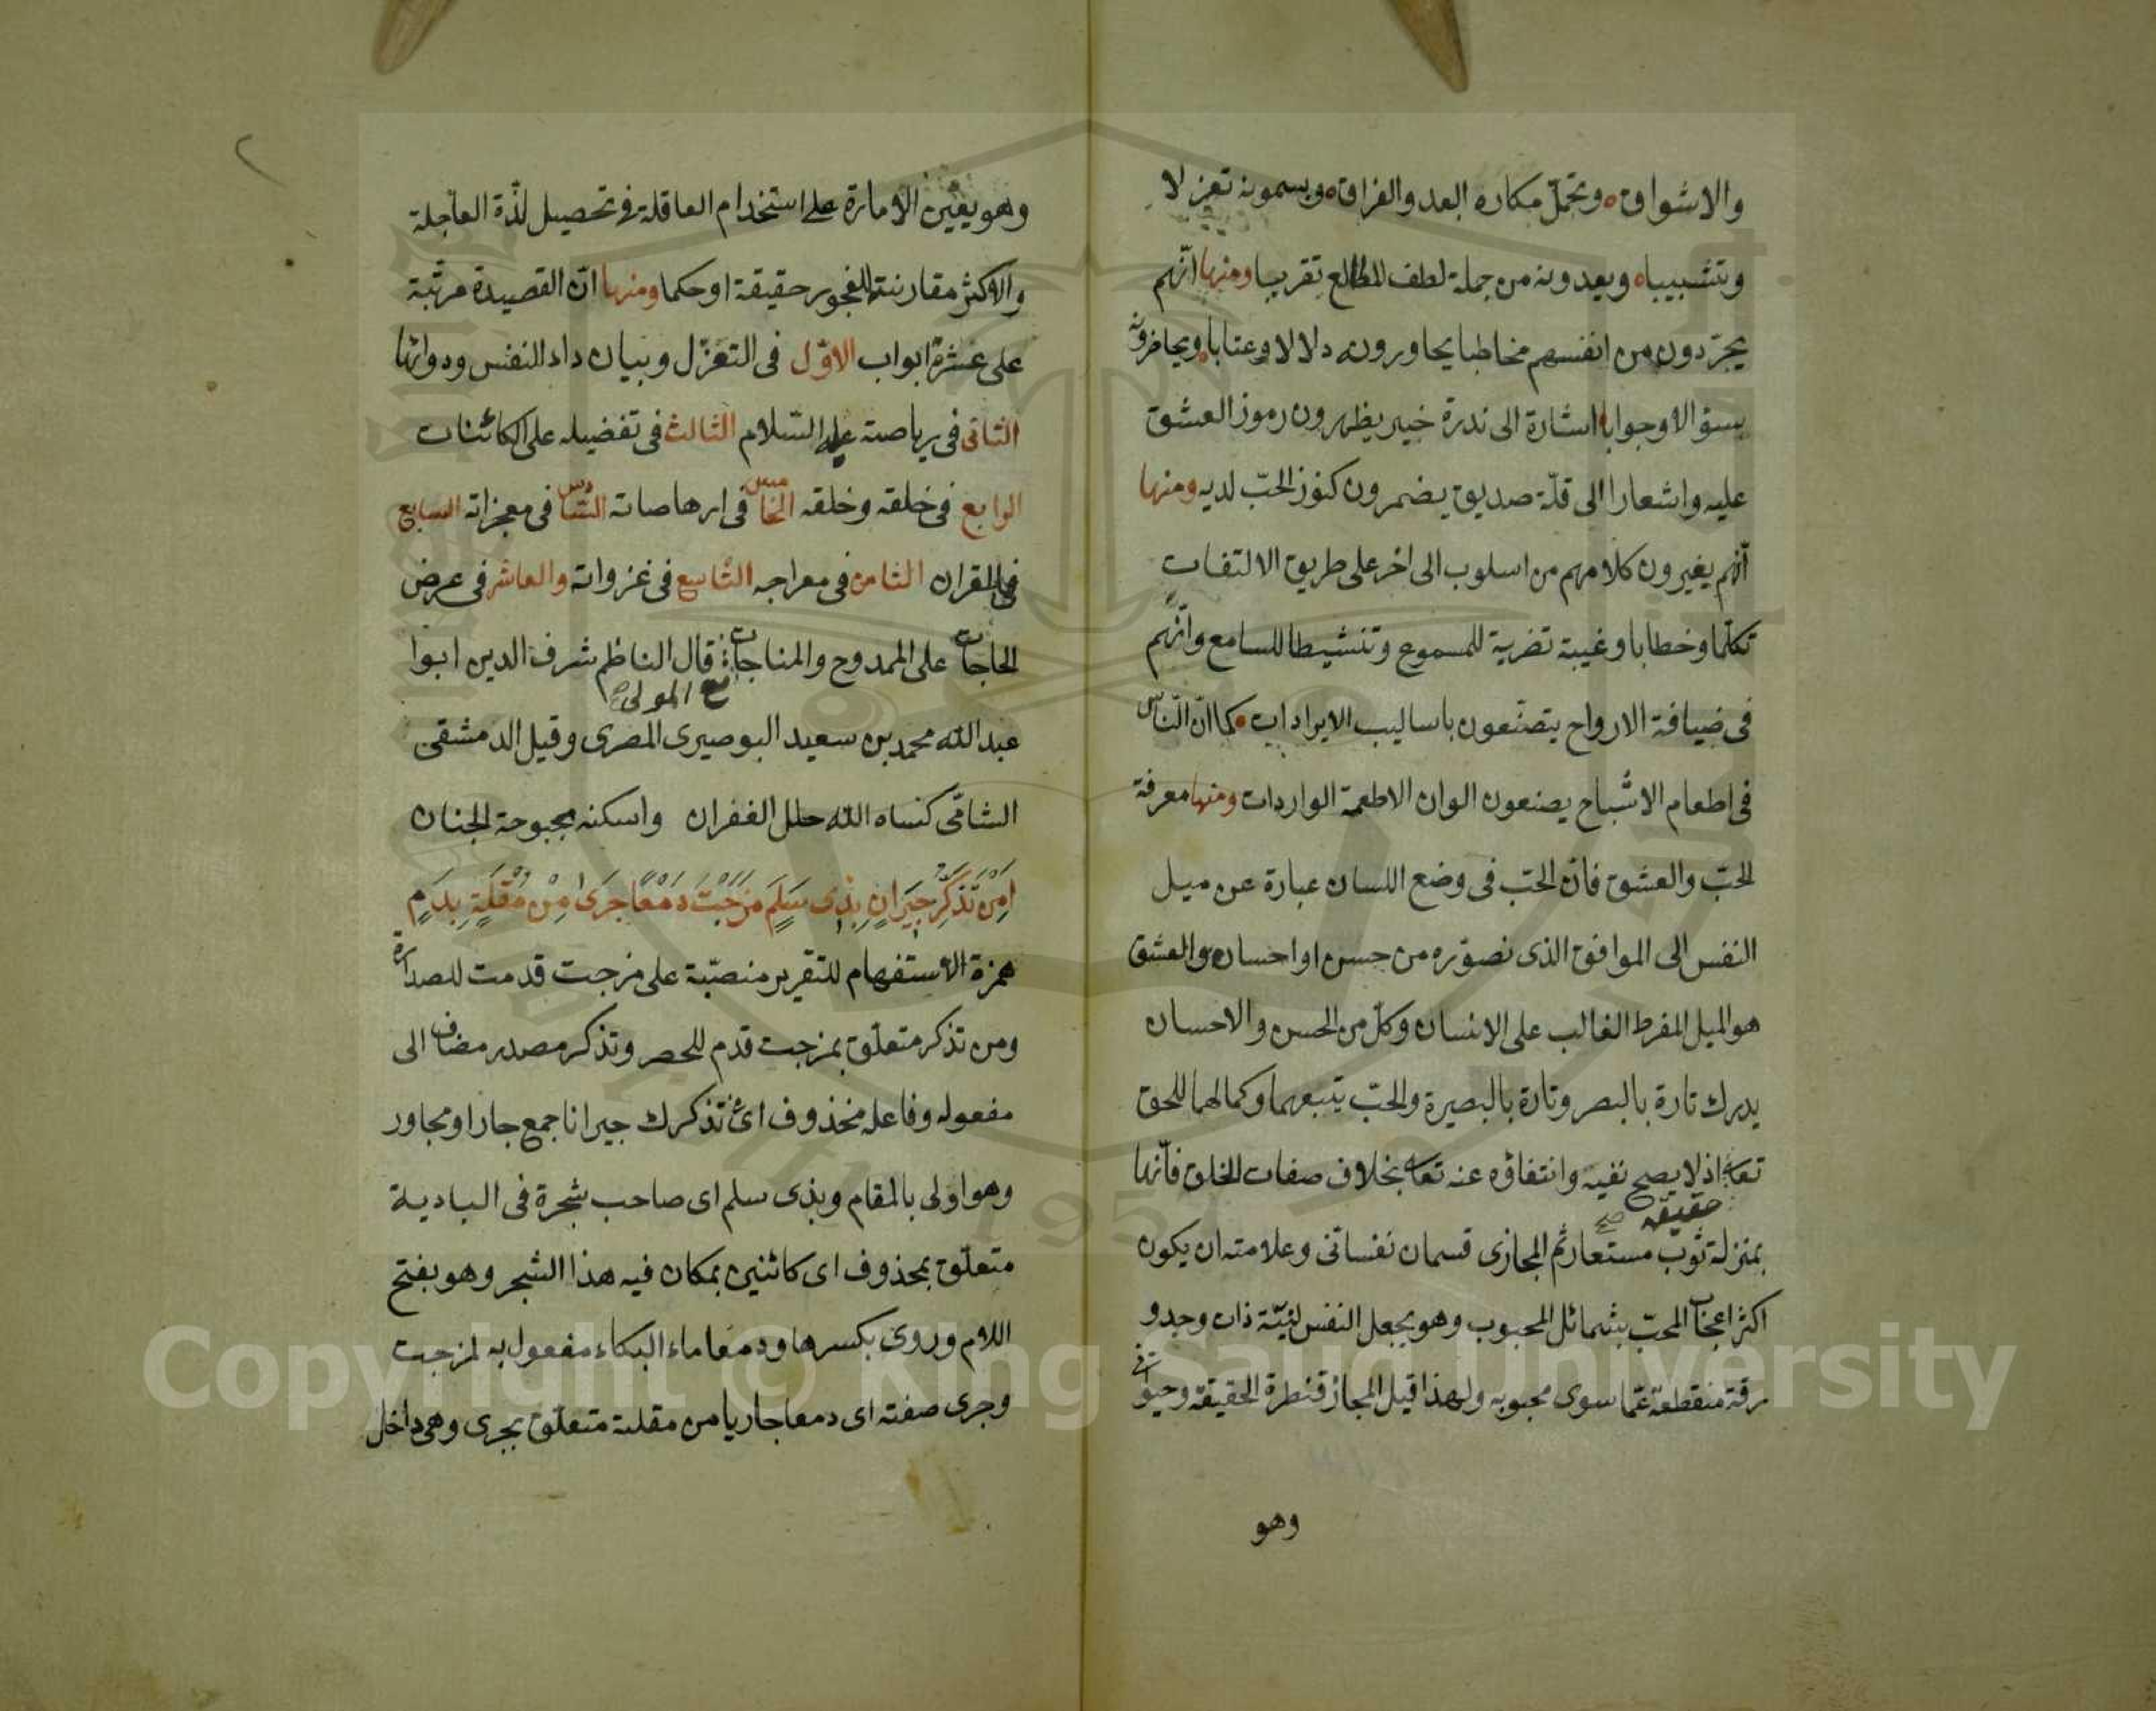 والاشواق وتحمّل مكاره البعد والفراق ويسمونه تغزلا
وتشبيبا ويعدونه من جملة لطف المطالع تقريبا ومنها انّهم
يجرّدون من انفسهم مخاطبا يحاورونه دلالا وعتابا ويحاضرونه
بسؤالا وجوابا اشارة الى ندرة خبير يظهرون رموز العشق
عليه واشعارا الى قلّة صديق يضمرون كنوز الحبّ لديه ومنها
انّهم يغيرون كلامهم من اسلوب الى اخر على طريق الالتفات
تكلّما وخطابا وغيبة تضرية للمسموع وتنشيطا للسامع وانّهم
فى ضيافة الارواح يتصنّعون باساليب الايرادات كما انّ النّاس
فى اطعام الاشباح يصنعون الوان الاطعمة الواردات ومنها معرفة
الحبّ والعشق فانّ الحبّ فى وضع اللسان عبارة عن ميل
النفس الى الموافق الذى تصوّره من حسن او احسان والعشق
هو الميل المفرط الغالب على الانسان وكلّ من الحسن والاحسان
يدرك تارة بالبصر وتارة بالبصيرة والحبّ يتبعهما وكمالهما للحق
تعا اذ لا يصح نفيه وانتفاؤه عنه تعا بخلاف صفات الخلق فانّها
حقيقه صح
بمنزلة ثوب مستعار ثم المجازى قسمان نفسانى وعلامته ان يكون
اكثر اعجاب المحبّ بشمائل المحبوب وهو يجعل النفس ليّنة ذات وجد و
رقة منقطعة عمّا سوى محبوبه ولهذا قيل المجاز قنطرة الحقيقة وحيوانى
وهو
وهو يعين الامارة على استخدام العاقلة فى تحصيل لذّة العاجلة
والاكثر مقارنته للفجور حقيقة او حكما ومنها انّ القصيدة مرتّبة
على عشرة ابواب الاوّل فى التغزّل وبيان داء النفس ودوائها
الثانى فى رياضته عليه السّلام الثالث فى تفضيله على الكائنات
الرابع فى خلقه وخلقه الخامس فى ارهاصاته السّادس فى معجزاته السابع
فى القران الثامن فى معراجه التّاسع فى غزواته والعاشر فى عرض
الحاجات على الممدوح والمناجات قال الناظم شرف الدين ابوا
مع المولى صح
عبد الله محمد بن سعيد البوصيرى المصرى وقيل الدمشقى
الشامّى كساه الله حلل الغفران واسكنه بحبوحة الجنان
اَمِنْ تَذَكُّرِ جِيرَانٍ بِذِى سَلَمِ مَزَجْتَ دَمْعًا جَرَى مِنْ مُقْلَةٍ بِدَمِ
همزة الاستفهام للتقرير منصبّة على مزجت قدمت للصدارة
ومن تذكر متعلّق بمزجت قدم للحصر وتذكر مصدر مضاف الى
مفعوله وفاعله محذوف اى تذكرك جيرانا جمع جار او مجاور
وهو اولى بالمقام وبذى سلم اى صاحب شجرة فى البادية
متعلّق بمحذوف اى كائنين بمكان فيه هذا الشجر وهو بفتح
اللام وروى بكسرها ودمعا ماء البكاء مفعول به لمزجت
وجرى صفته اى دمعا جاريا من مقلته متعلّق بجرى وهى داخل
٢
Copyright © King Saud University